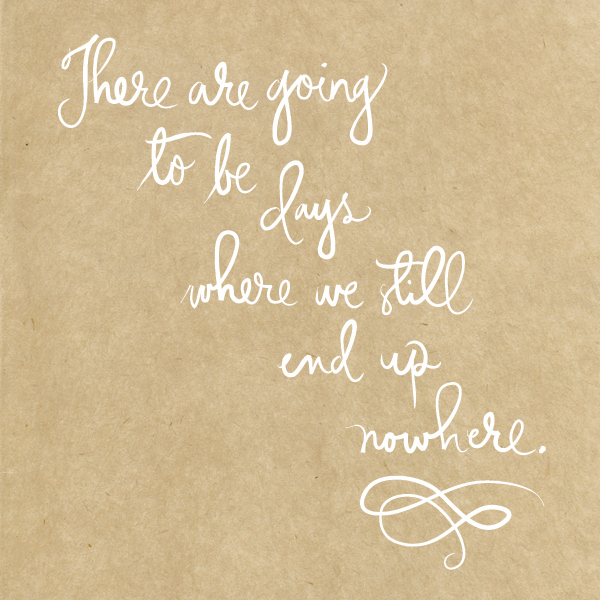 There are going
to be
days
where we still
end up
nowhere.